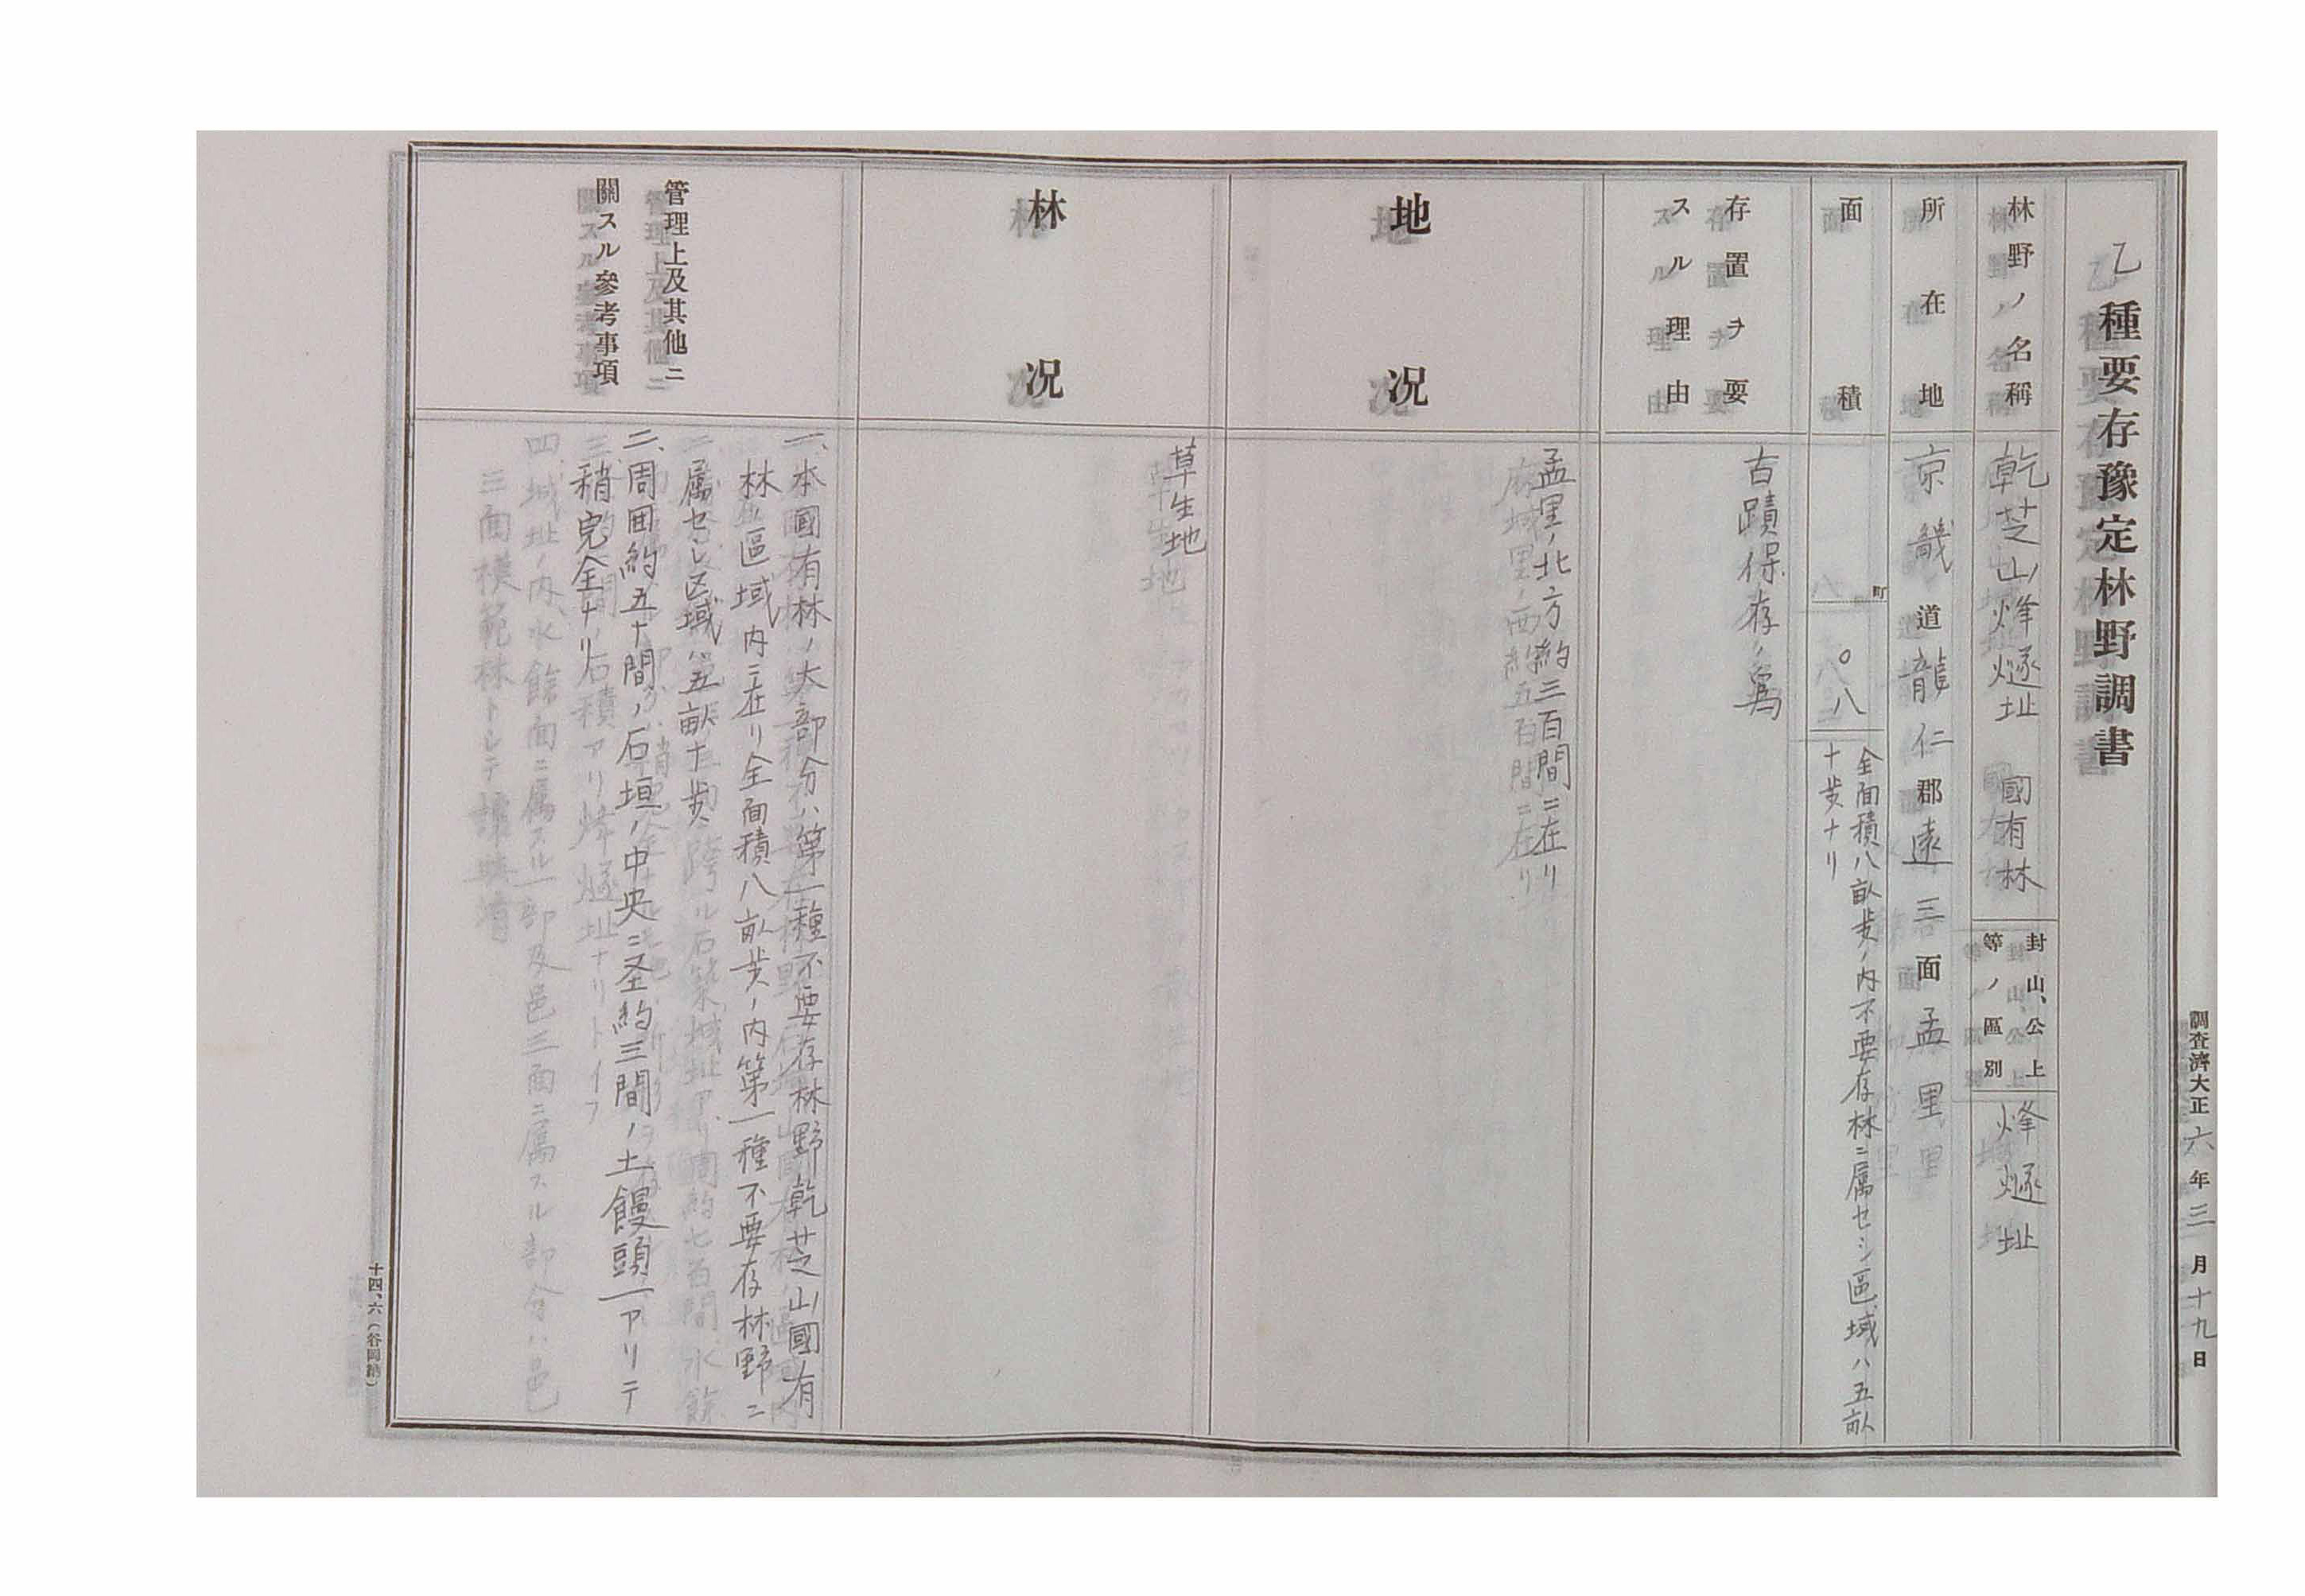 調査濟大正六年三月十九日
乙種要存豫定林野調書
林野ノ名稱
乾芝山烽燧址 國有林
封山、公上
等ノ區別
烽燧址
所在地
京畿道龍仁郡遠三面孟里
面積
町
〇八
全面積八畝歩ノ内不要存林ニ属セシ區域ハ五畝
十歩ナリ
存置ヲ要
スル理由
古蹟保存ノ爲
地況
孟里ノ北方約三百間ニ在リ
林況
草生地
管理上及其他ニ
關スル參考事項
一、本國有林ノ大部分ハ第一種不要存林野乾芝山國有
林ノ區域内ニ在リ全面積八畝歩ノ内第一種不要存林野ニ
属セシ区域ハ五畝十歩
二、周囲約五十間ノ石垣ノ中央ニ圣約三間ノ土饅頭一アリテ
稍完全ナリ
十四、六(谷岡納)